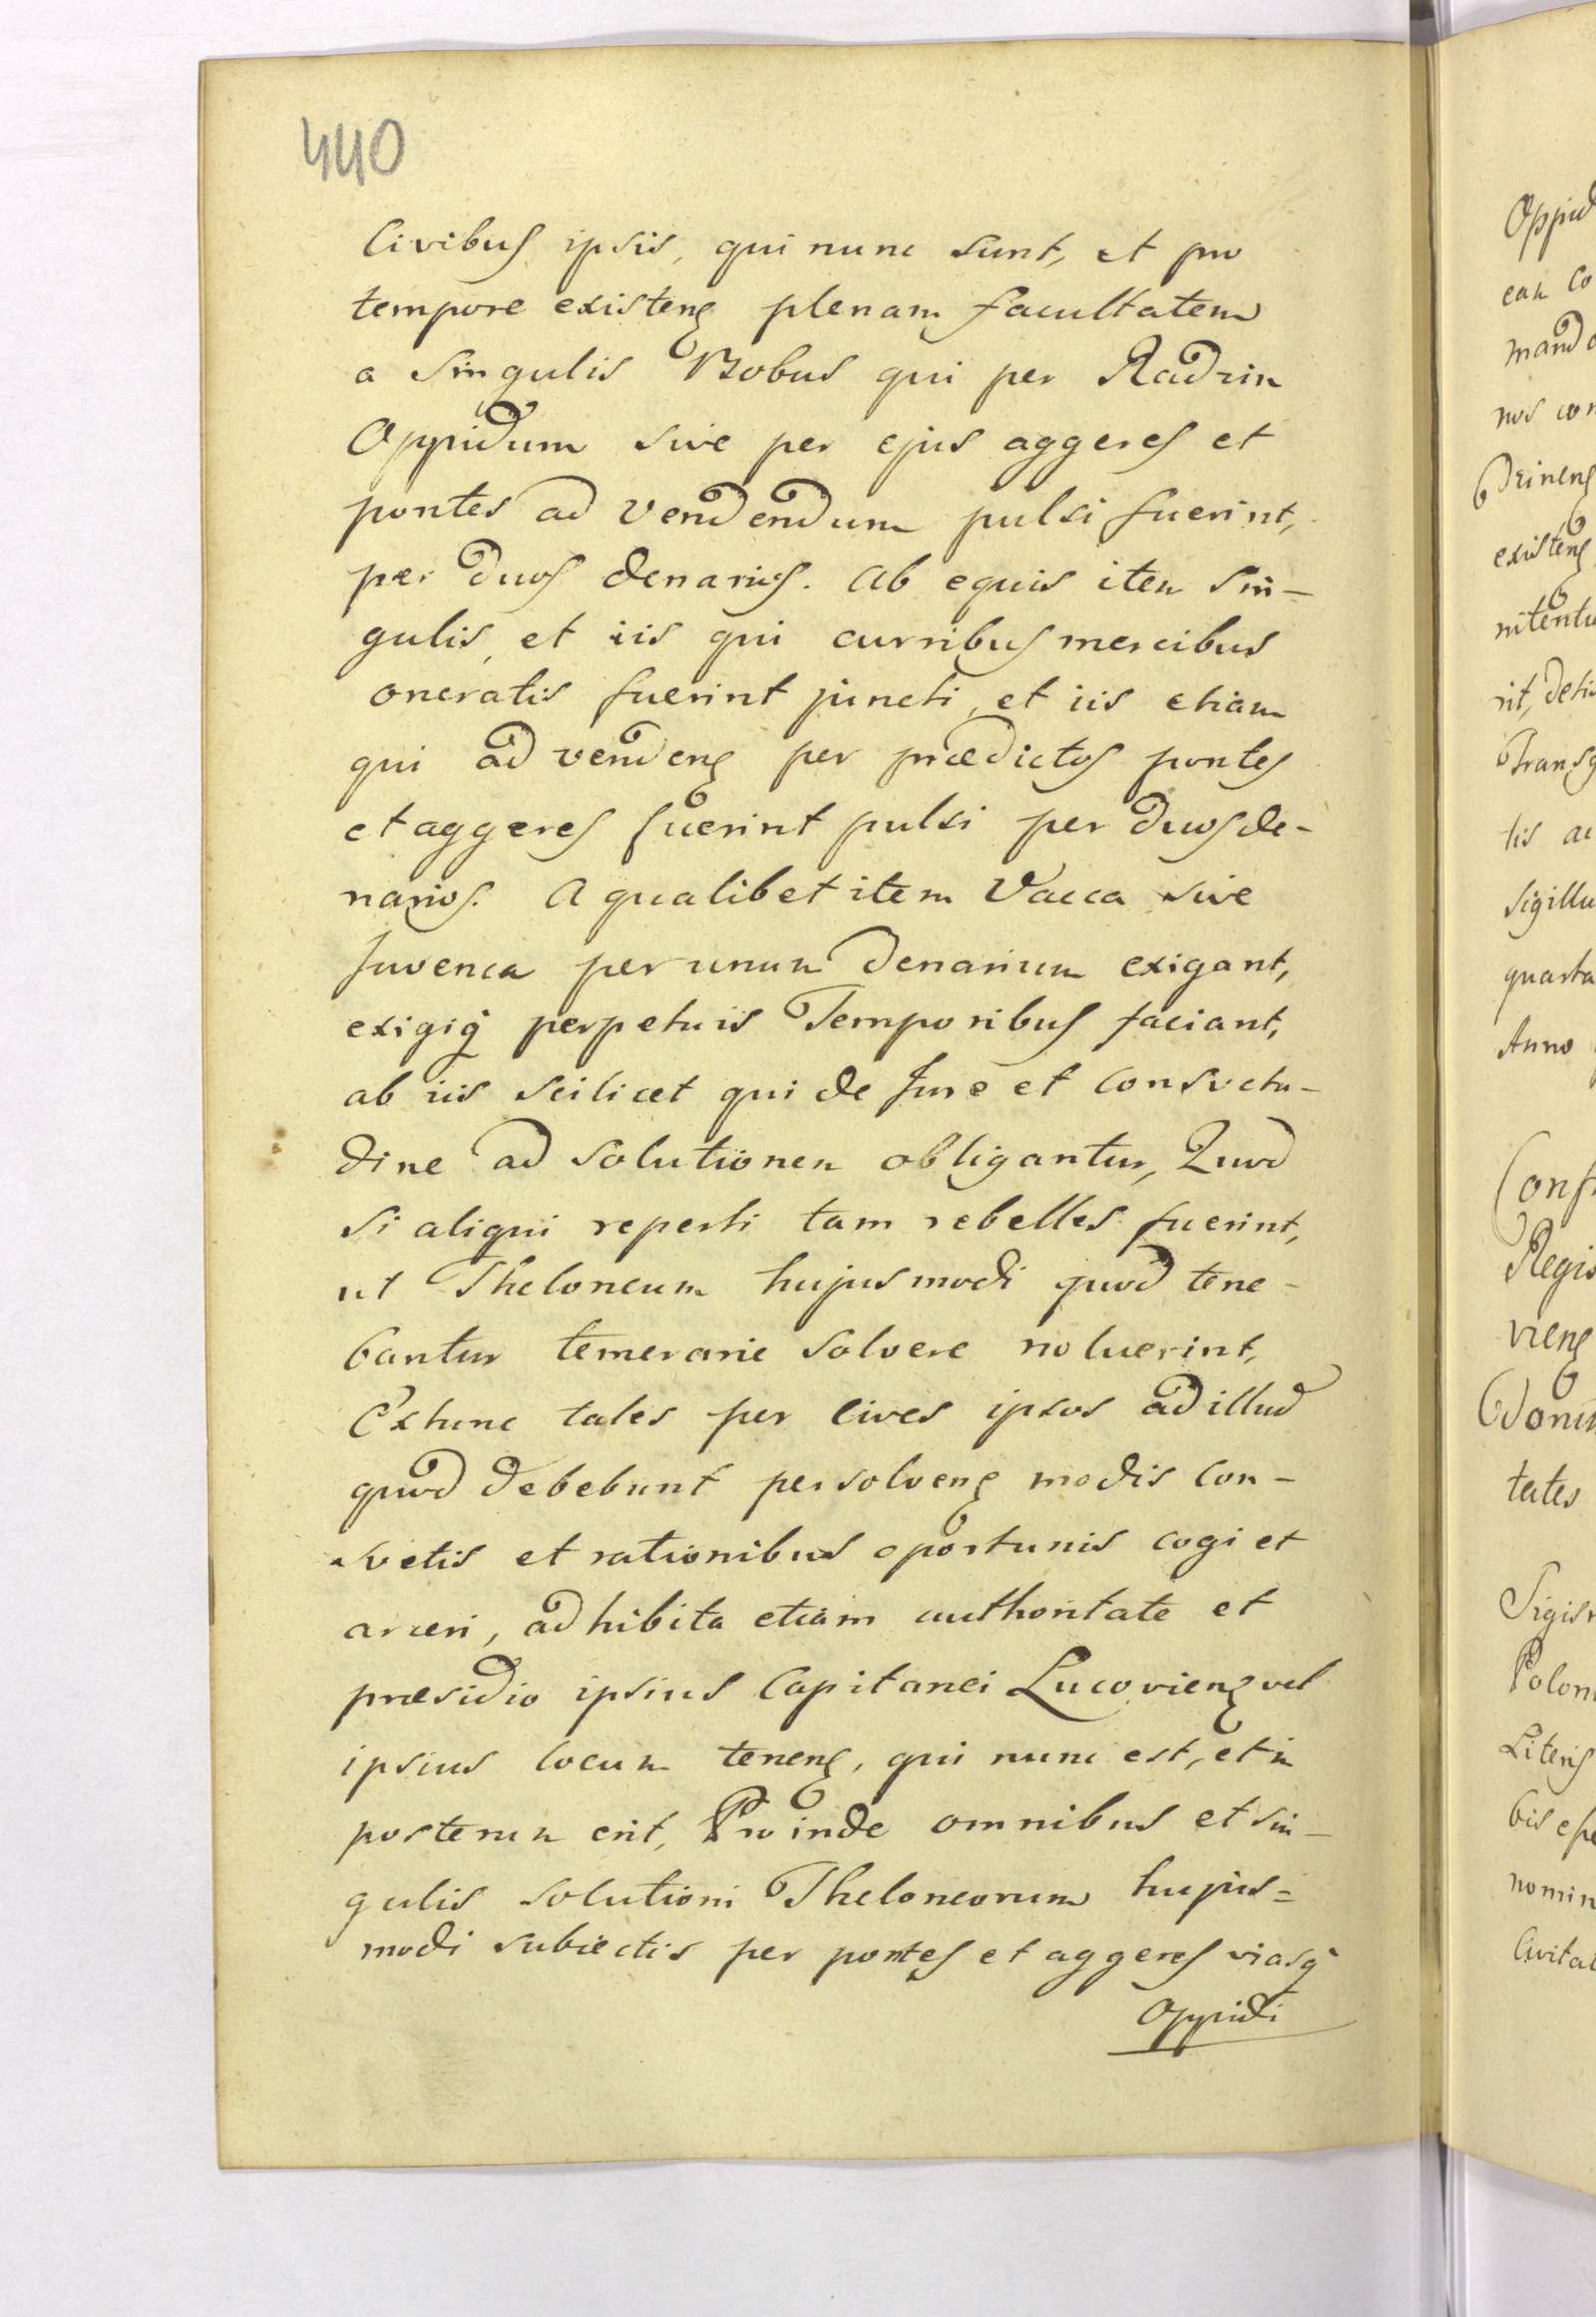 440
Civibus ipsis, qui nunc sunt, et pro
tempore existenꝭ plenam facultatem
a singulis Bobus qui per Radzin
Oppidum sive per ejus aggeres et
pontes ad vendendum pulsi fuerint,
per duos denarios. Ab equis item sin-
gulis, et iis qui curribus mercibus
oneratis fuerint juncti, et iis etiam
qui ad vendenꝭ per prædictos pontes
et aggeres fuerint pulsi per duos de-
narios. A qualibet item Vacca sive
Juvenca per unum denarium exigant,
exigiq̃ perpetuis Temporibus faciant,
ab iis scilicet qui de Jure et Consvetu-
dine ad solutionem obligantur, Quod
si aliqui reperti tam rebelles fuerint,
ut Theloneum hujusmodi quod tene-
bantur temerarie solvere noluerint,
Extunc tales per cives ipsos ad illud
quod debebunt persolvenꝭ modis con-
svetis et rationibus oportunis cogi et
arceri, adhibita etiam authoritate et
præsidio ipsius Capitanei Lucovienꝭ vel
ipsius locum tenenꝭ, qui nunc est, et in
posterum erit, Proinde omnibus et sin-
gulis solutioni Theloneorum hujus=
modi subiectis per pontes et aggeres viasq̃
Oppidi
Oppid
eam co
mand
nos con
existenꝭ
rit,
Transg
tis
sigillu
quarta
Anno
Conf
Regis
vienꝭ
tates
Sigis
Polon
Literis
bis
nomin
Civitat